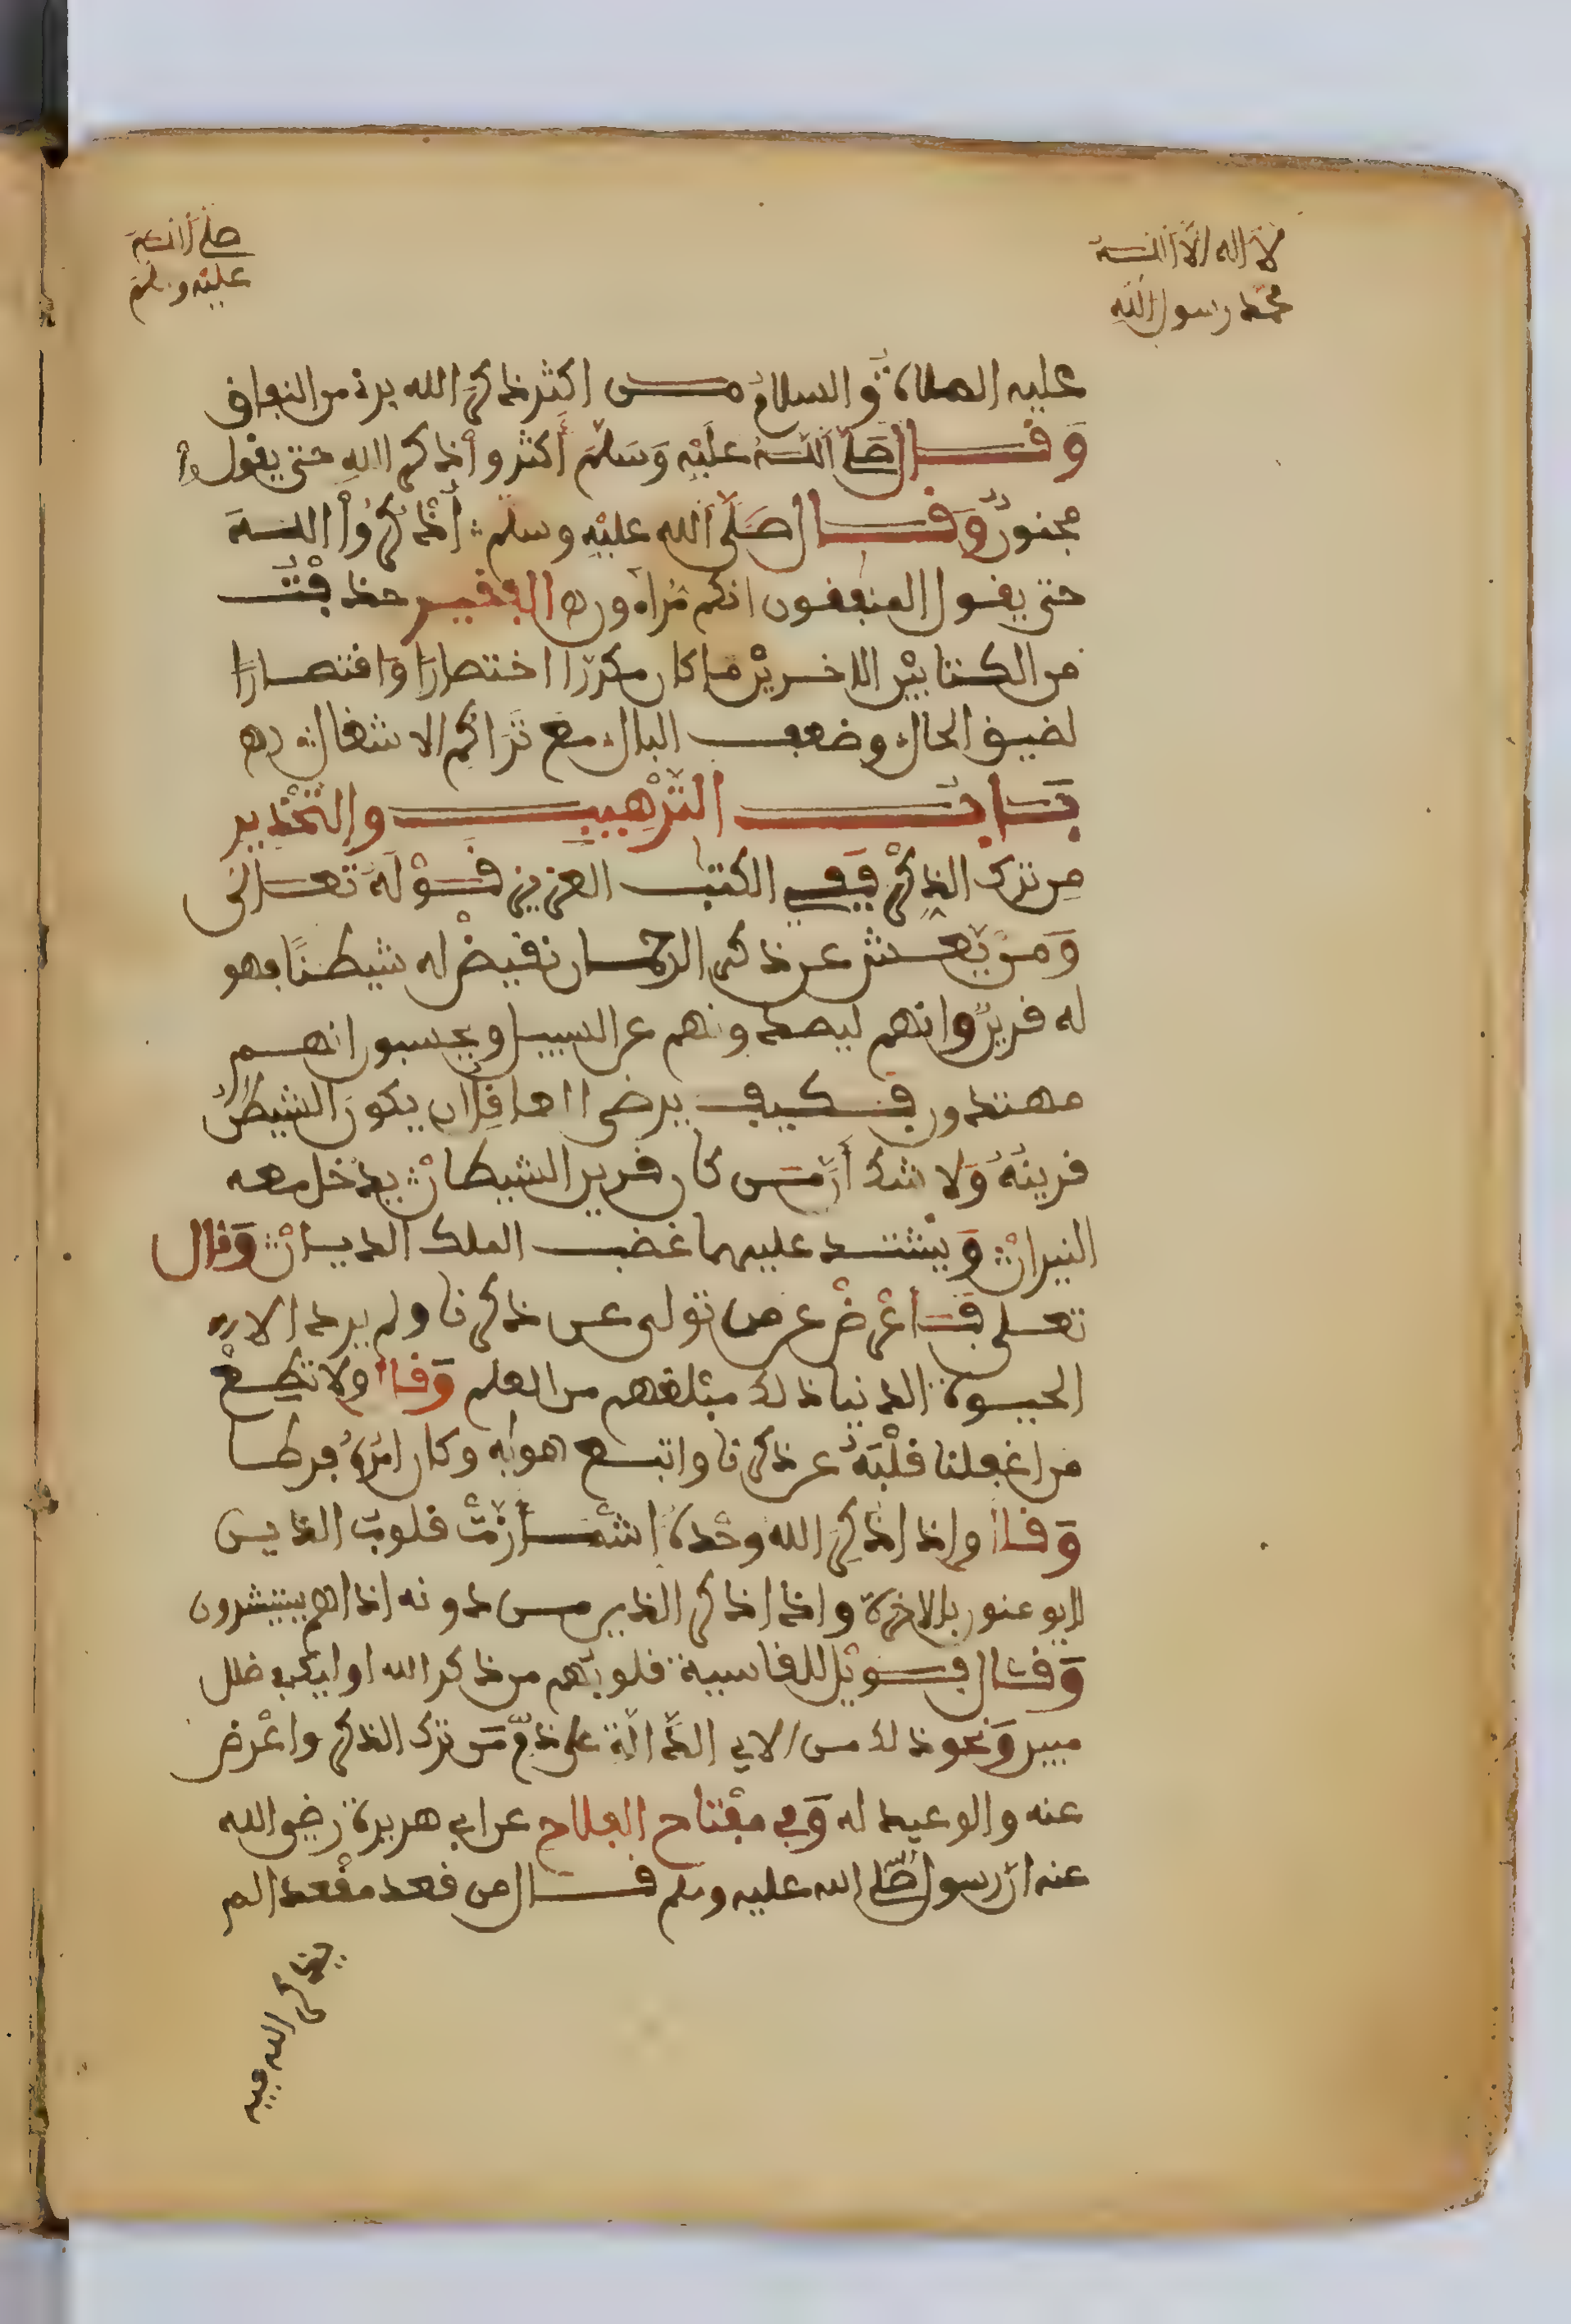 لا اله الا الله
محمد رسول الله
صلى الله
عليه وسلم
عليه الصلاة والسلام من اكثر ذكر الله برئ من النفاق
وَقال صَلى اللهُ عليْهِ وَسَلمَ أكثروا ذكر اللهِ حتى يقولوا
مجنونٌ وَقال صَلّى الله عليْهِ وسلم أذْكرُواْ اللهَ
حتى يقول المنفقون انكم مُراءون ه الفقير حذفْتُ
من الكتابيْن الاخريْن ما كان مكررًا اختصارًا وَاقتصارًا
لضيق الحال وضعف البال مع تَراكم الاشغال ه
بَابُ التّرْهيب والتّحْذير
مِن ترك الذكْر فَفي الكتٰب العزيز قوْلهُ تعالى
وَمن يّعش عن ذكر الرحمان نقيضْ له شيطنًا فهو
له قرينٌ وانهم ليصدونهم عن السبيل ويحسبون انهم
مهتدون فكيف يرضى العاقل أن يكون الشيطن
قرينُهُ وَلا شك أنّ مَن كان قرين الشيطان يدْخل معه
النيران وَيشتد عليهما غضب الملك الديان وَقال
تعلى فأعْرضْ عن من تولى عن ذكرنا ولم يرد الا
الحيوة الدنيا ذلك مبلغهم من العلم وَقال ولا تطعْ
من اغفلنا قلْبَهُ عن ذكرنا واتبع هويه وكان امْرهُ فرطا
وَقال واذا ذكِر الله وحْدهُ اشْمأزّتْ قلوب الذين
لا يومنون بالاخرة واذا ذكر الذين من دونه اذا هم يستبشرون
وَقال فويْل للقاسية قلوبهم من ذكر الله اوليك في ضلل
مبين وَنحو ذلك من الاي الدّالّة على ذمّ مَن ترك الذكر واعْرض
عنه والوعيد له وَفي مفْتاح الفلاح عن ابي هريرة رضي الله
عنه انّ رسول صلى الله عليه وسلم قال من قعد مقْعدا لم
يذكر الله فيه